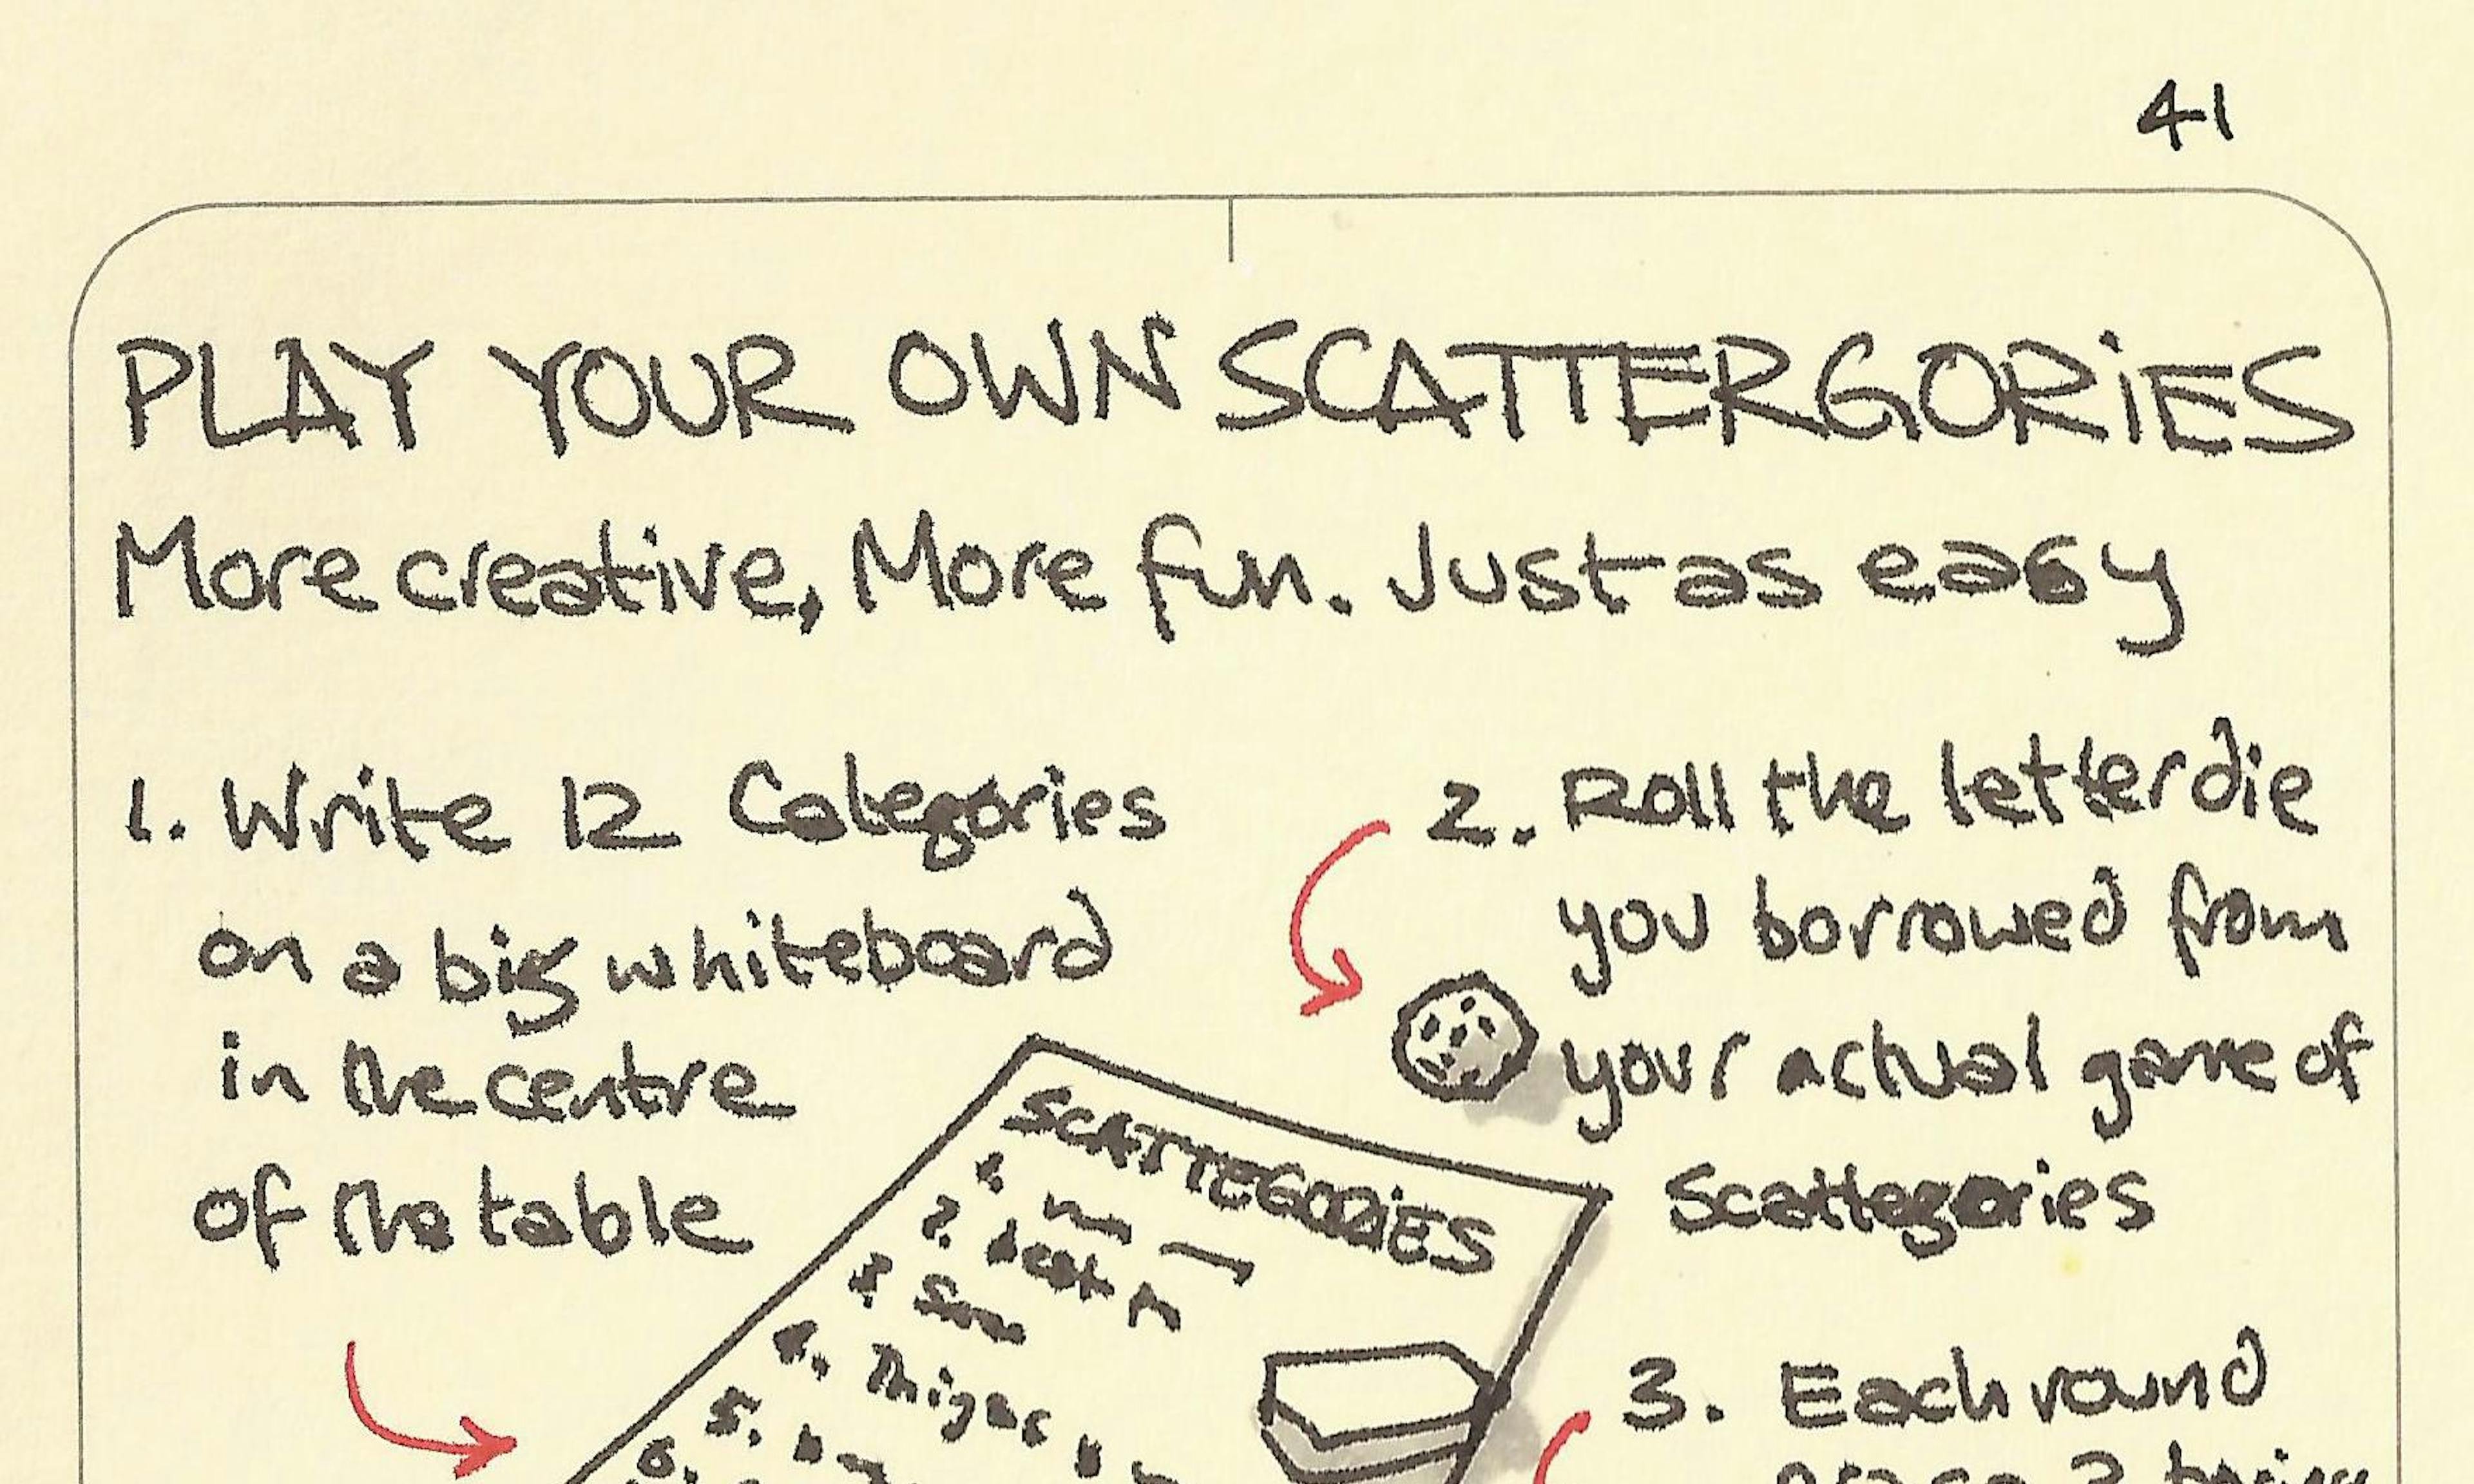 41
PLAY YOUR OWN SCATTERGORIES
More creative, More fun. Just as easy
1. Write 12 Categories
on a big whiteboard
in the centre
of the table
2. Roll the letter die
you borrowed from
your actual game of
Scattegories
SCATTEGORIES
1.
2.
3. 
4. Things
5.
6.
3. Each round